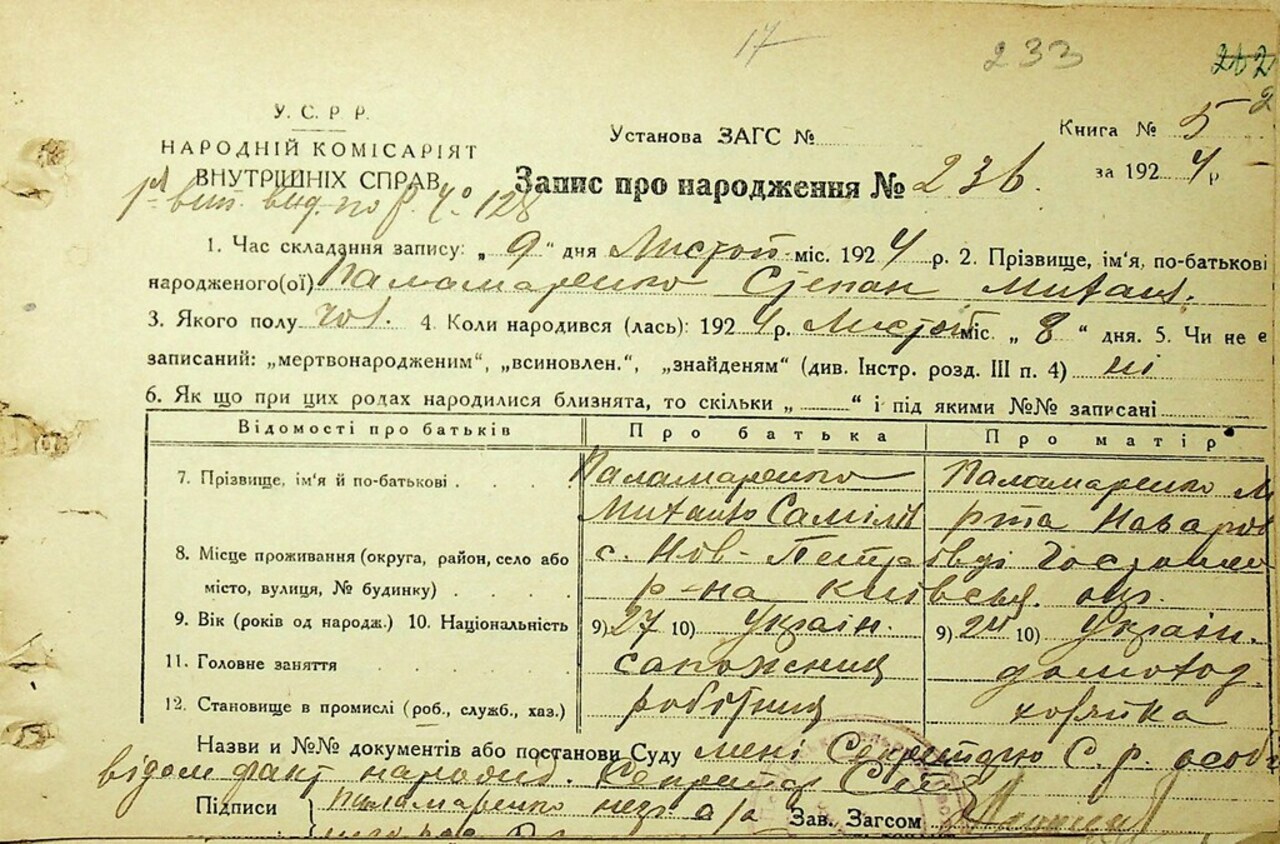 17
233
202
2
У. С. Р. Р.
НАРОДНІЙ КОМІСАРІЯТ
ВНУТРІШНІХ СПРАВ
Установа ЗАГС №
Книга № 5
за 1924 р
Запис про народження № 236.
1. Час складання запису: „ 9 “ дня Листоп. міс. 1924 р. 2. Прізвище, ім‘я, по-батькові
народженого(ої) Паламаренко Степан Михайл.
3. Якого полу чол. 4. Коли народився (лась): 1924 р. Листоп міс. „ 8 “ дня. 5. Чи не є
записаний: „мертвонародженим“, „всиновлен.“, „знайденям“ (див. Інстр. розд. III п. 4) ні
6. Як що при цих родах народилися близнята, то скільки „ “ і під якими №№ записані
Відомості про батьків Про батька Про матір
7. Прізвище, ім‘я й по-батькові Паламаренко Паламаренко М
Михайло Самійл рта Назаров
8. Місце проживання (округа, район, село або с. Нов-Петрівці Гостомел
місто, вулиця, № будинку) р-на Київськ. окр.
9. Вік (років од народж.) 10. Національність 9) 27 10) Україн. 9) 24 10) Україн.
11. Головне заняття сапожник домохоз.
12. Становище в промислі (роб., служб., хаз.) робітник хозяйка
Назви и №№ документів або постанови Суду мені Секретарю С. р. особ
відом факт народж. Секретар
Підписи Паламаренко Зав. Загсом